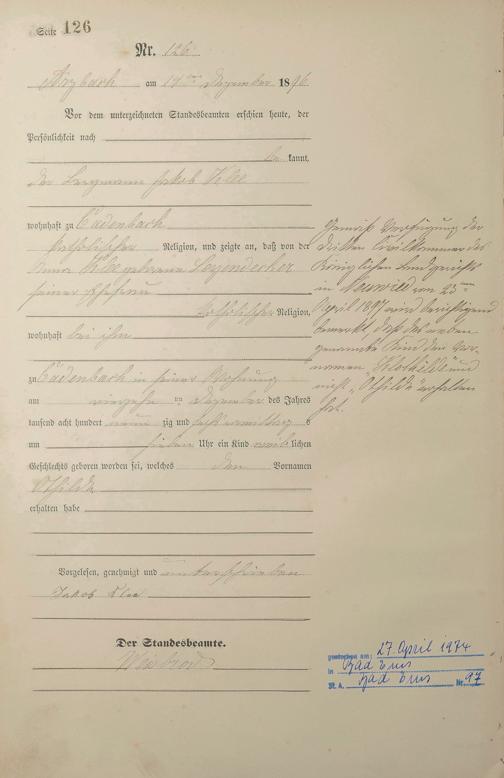 Seite 126
Nr. 126
Arzbach am 17ten Dezember 1896
Vor dem unterzeichneten Standesbeamten erschien heute, der
Persönlichkeit nach
be kannt,
der Bergmann Jakob Klee
wohnhaft zu Cadenbach
katholischer Religion, und zeigte an, daß von der
Anna Klee geborene Leyendecker
seiner Ehefrau
katholischer Religion,
wohnhaft bei ihm
zu Cadenbach in seiner Wohnung
am vierzehnten Dezember des Jahres
tausend acht hundert neun zig und sechs vormittags
um sieben Uhr ein Kind weib lichen
Geschlechts geboren worden sei, welches den Vornamen
Othilde
erhalten habe
Vorgelesen, genehmigt und unterschrieben
Jakob Klee
Der Standesbeamte.
Gemäß Verfügung der
dritten Civilkammer des
Königlichen Landgerichts
in Neuwied vom 23ten
April 1897 wird berichtigend
bemerkt, daß das neben
genannte Kind den Vor-
namen "Klothilde" und
nicht "Othilde" erhalten
hat.
gestorben am: 27. April 1974
in Bad Ems
St. A. Bad Ems Nr. 97